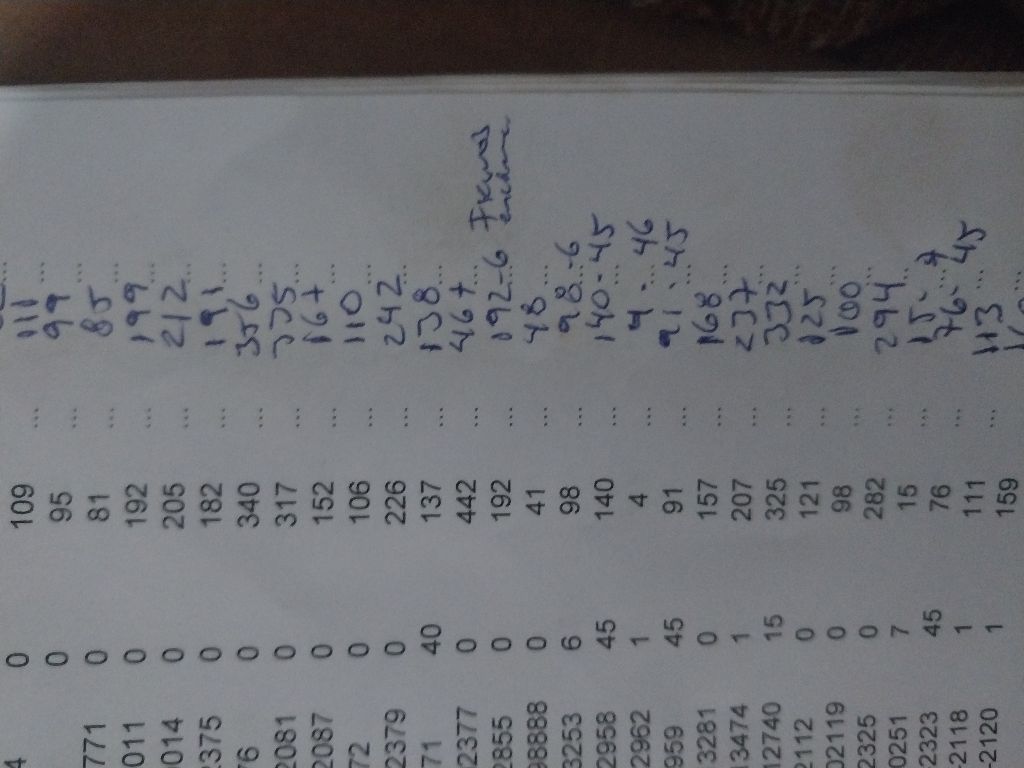 4 0 109 ... 111 ...
0 95 ... 99 ...
771 0 81 ... 85 ...
011 0 192 ... 199 ...
014 0 205 ... 212 ...
2375 0 182 ... 191 ...
76 0 340 ... 356 ...
2081 0 317 ... 335 ...
2087 0 152 ... 167 ...
72 0 106 ... 110 ...
2379 0 226 ... 242 ...
71 40 137 ... 138 ...
2377 0 442 ... 467 ...
2855 0 192 ... 192-6 ...
98888 0 41 ... 48 ...
3253 6 98 ... 98-6 ...
2958 45 140 ... 140-45 ...
2962 1 4 ... 4. 46 ...
959 45 91 ... 91. 45 ...
3281 0 157 ... 168 ...
13474 1 207 ... 237 ...
12740 15 325 ... 332 ...
2112 0 121 ... 125 ...
02119 0 98 ... 100 ...
2325 0 282 ... 294 ...
0251 7 15 ... 15- ...
2323 45 76 ... 76- ...
2118 1 111 ... 113 45 ...
2120 1 159 ...